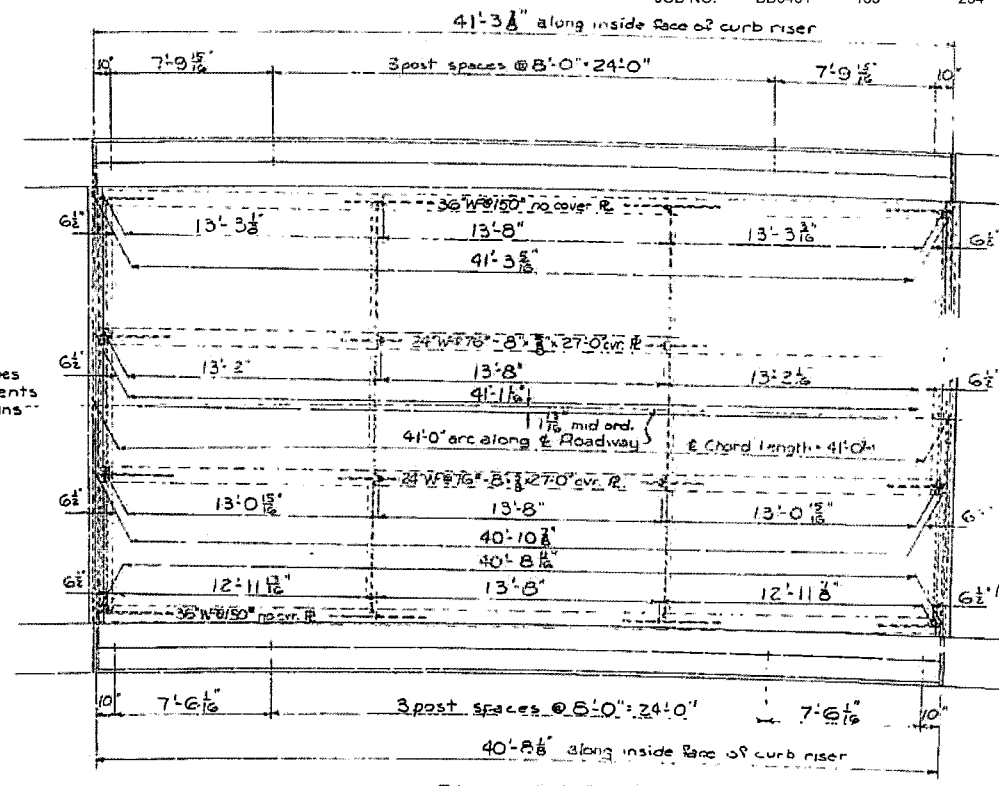 JOB NO.
41'-3 7/8" along inside face of curb riser
10" 7'-9 15/16" 3 post spaces @ 8'-0" = 24'-0" 7'-9 15/16" 10"
36"WF@150" no cover PL
6 1/2" 13'-3 1/8" 13'-8" 13'-3 3/16" 6 1/2"
41'-3 5/16"
24"WF@76"-8"x 5/8"x 27'-0" cvr. PL
6 1/2" 13'-2" 13'-8" 13'-2 1/16" 6 1/2"
41'-1 1/16"
1 13/16" mid ord.
41'-0" arc along ℄ Roadway ℄ Chord Length = 41'-0"
24"WF@76"-8"x 5/8"x 27'-0" cvr. PL
6 1/2" 13'-0 15/16" 13'-8" 13'-0 15/16"
40'-10 7/8"
40'-8 11/16"
6 1/2" 12'-11 13/16" 13'-8" 12'-11 7/8" 6 1/2"
36"WF@150" no cvr. PL
10" 7'-6 1/16" 3 post spaces @ 8'-0" = 24'-0" 7'-6 1/16" 10"
40'-8 1/8" along inside face of curb riser